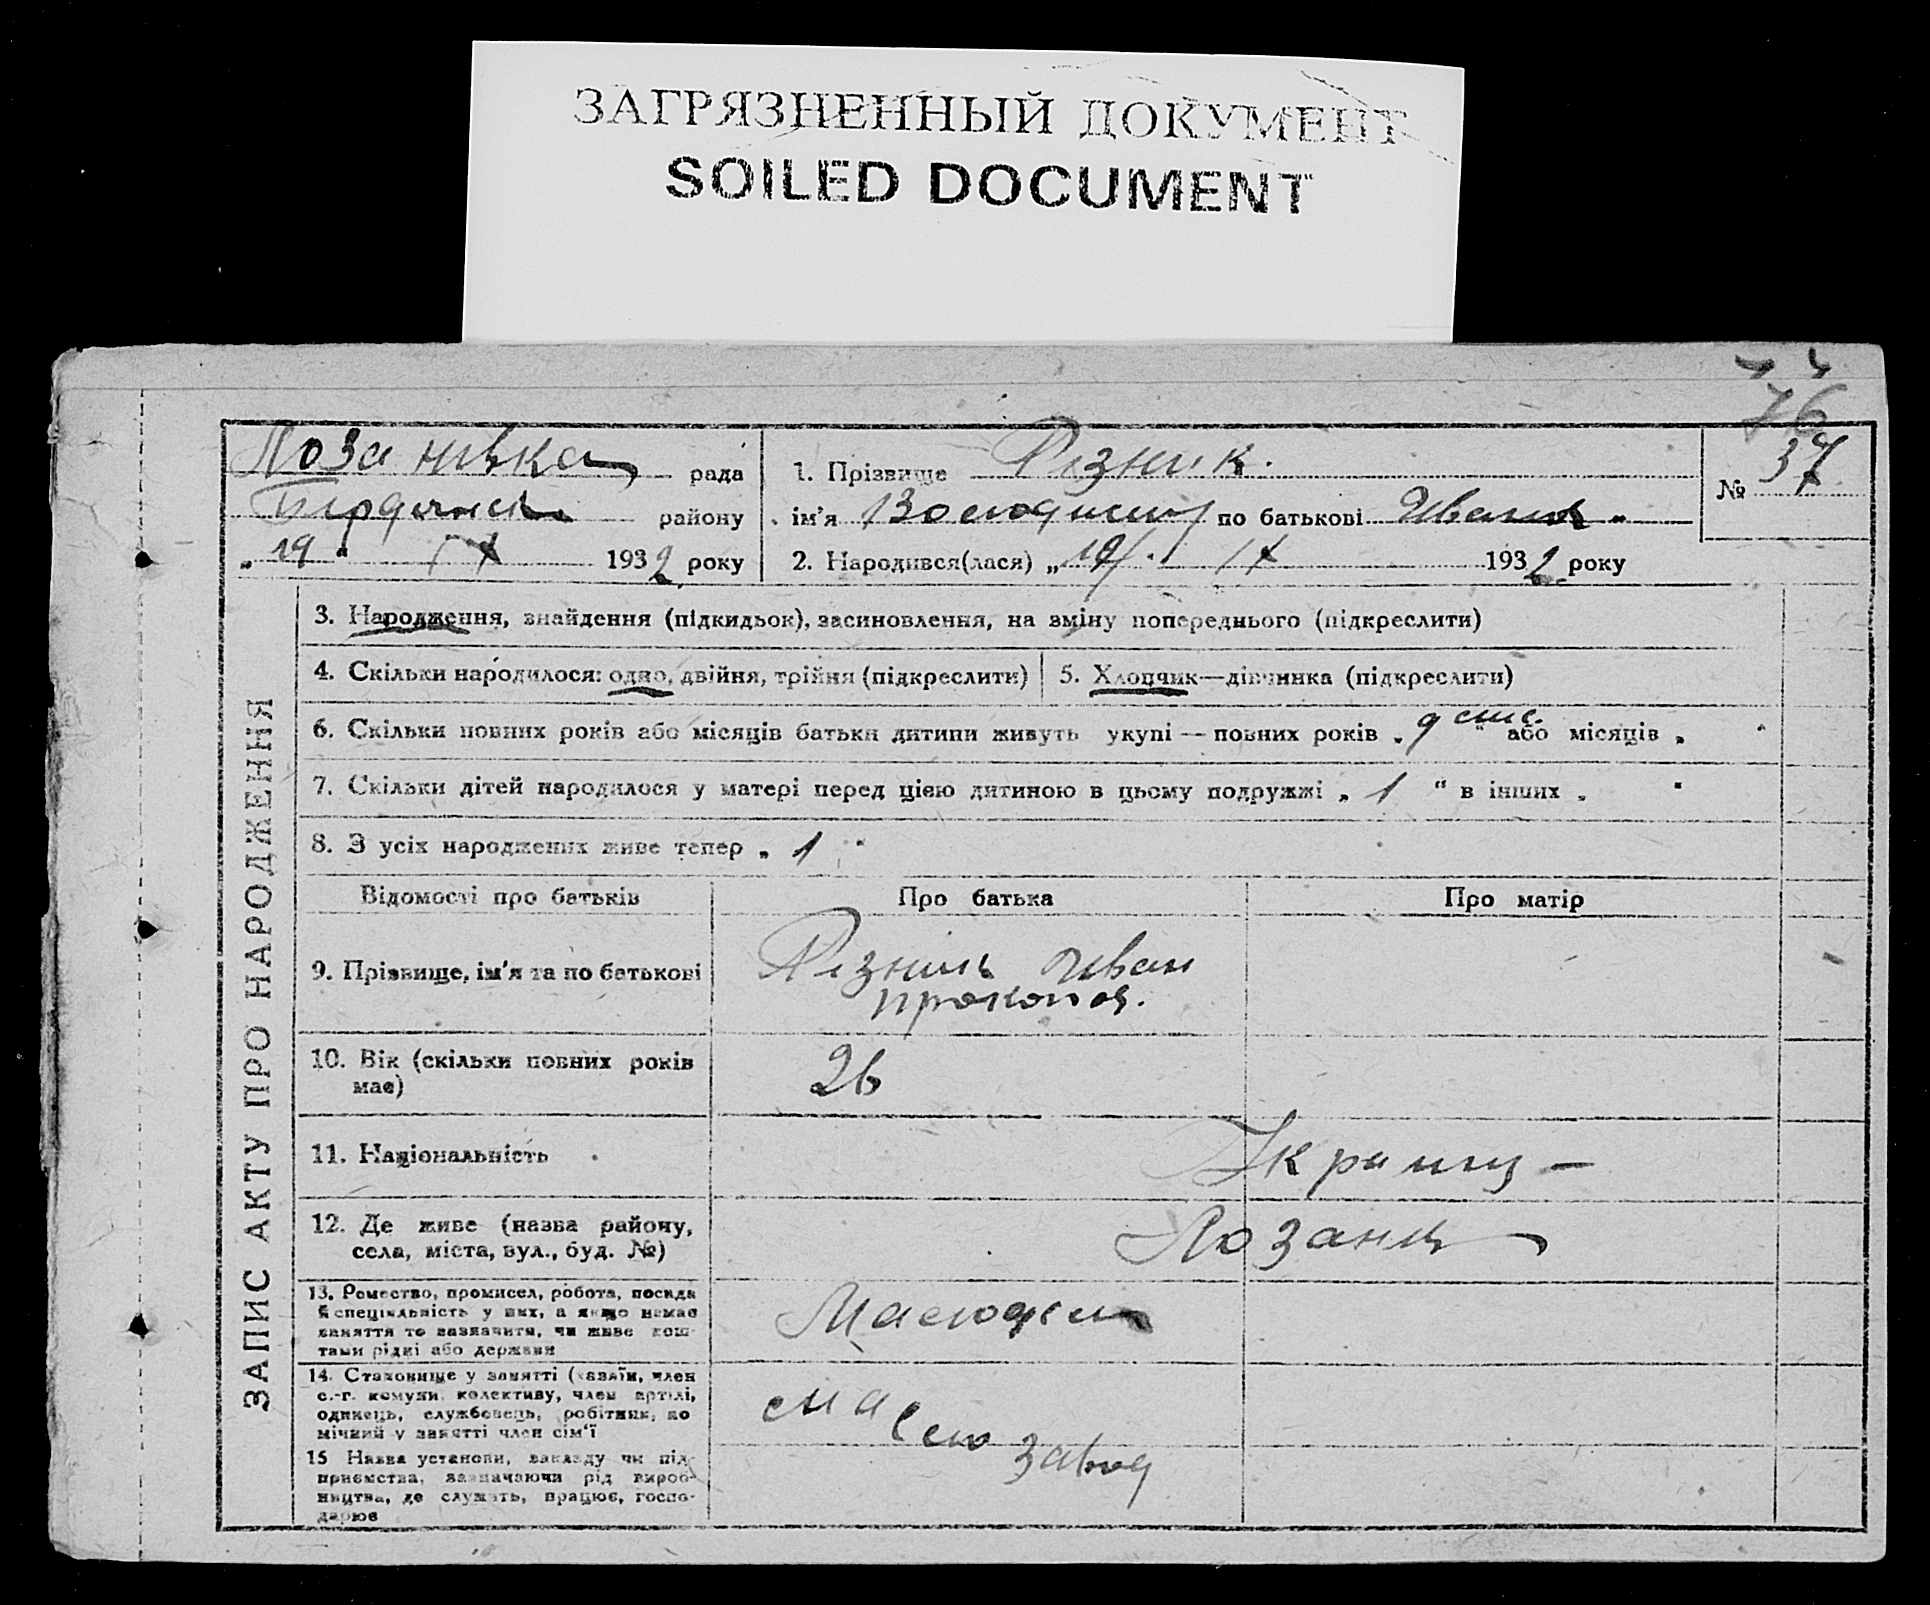 ЗАГРЯЗНЕННЫЙ ДОКУМЕНТ
SOILED DOCUMENT
76
Лозанивка рада
району
„19“ IX 1932 року
1. Прізвище Різник.
№ 37
ім'я по батькові Иванов
2. Народився(лася) „19“ IX 1932 року
3. Народження, знайдення (підкидьок), засиновлення, на зміну попереднього (підкреслити)
4. Скільки народилося: одно, двійня, трійня (підкреслити)
5. Хлопчик—дівчинка (підкреслити)
6. Скільки повних років або місяців батьки дитини живуть укупі — повних років „ “ або місяців „ “
7. Скільки дітей народилося у матері перед цією дитиною в цьому подружжі „ 1 “ в інших „ “
8. З усіх народжених живе тепер „ 1 “
ЗАПИС АКТУ ПРО НАРОДЖЕННЯ
Відомості про батьків
Про батька
Про матір
9. Прізвище, ім'я та по батькові
Різник Иван
Прокопов.
10. Вік (скільки повних років
має)
26
11. Національність
12. Де живе (назва району,
села, міста, вул., буд. №)
13. Ремество, промисел, робота, посада
й спеціяльність у них, а якщо немає
заняття то зазначити, чи живе кош-
тами рідні або держави
14. Становище у занятті (хазяїн, член
с.-г. комуни, колективу, член артілі,
одинець, службовець, робітник, по
мічний у занятті член сім'ї
15 Назва установи, закладу чи під-
приємства, зазначаючи рід вироб-
ництва, де служить, працює, госпо-
дарює
завод